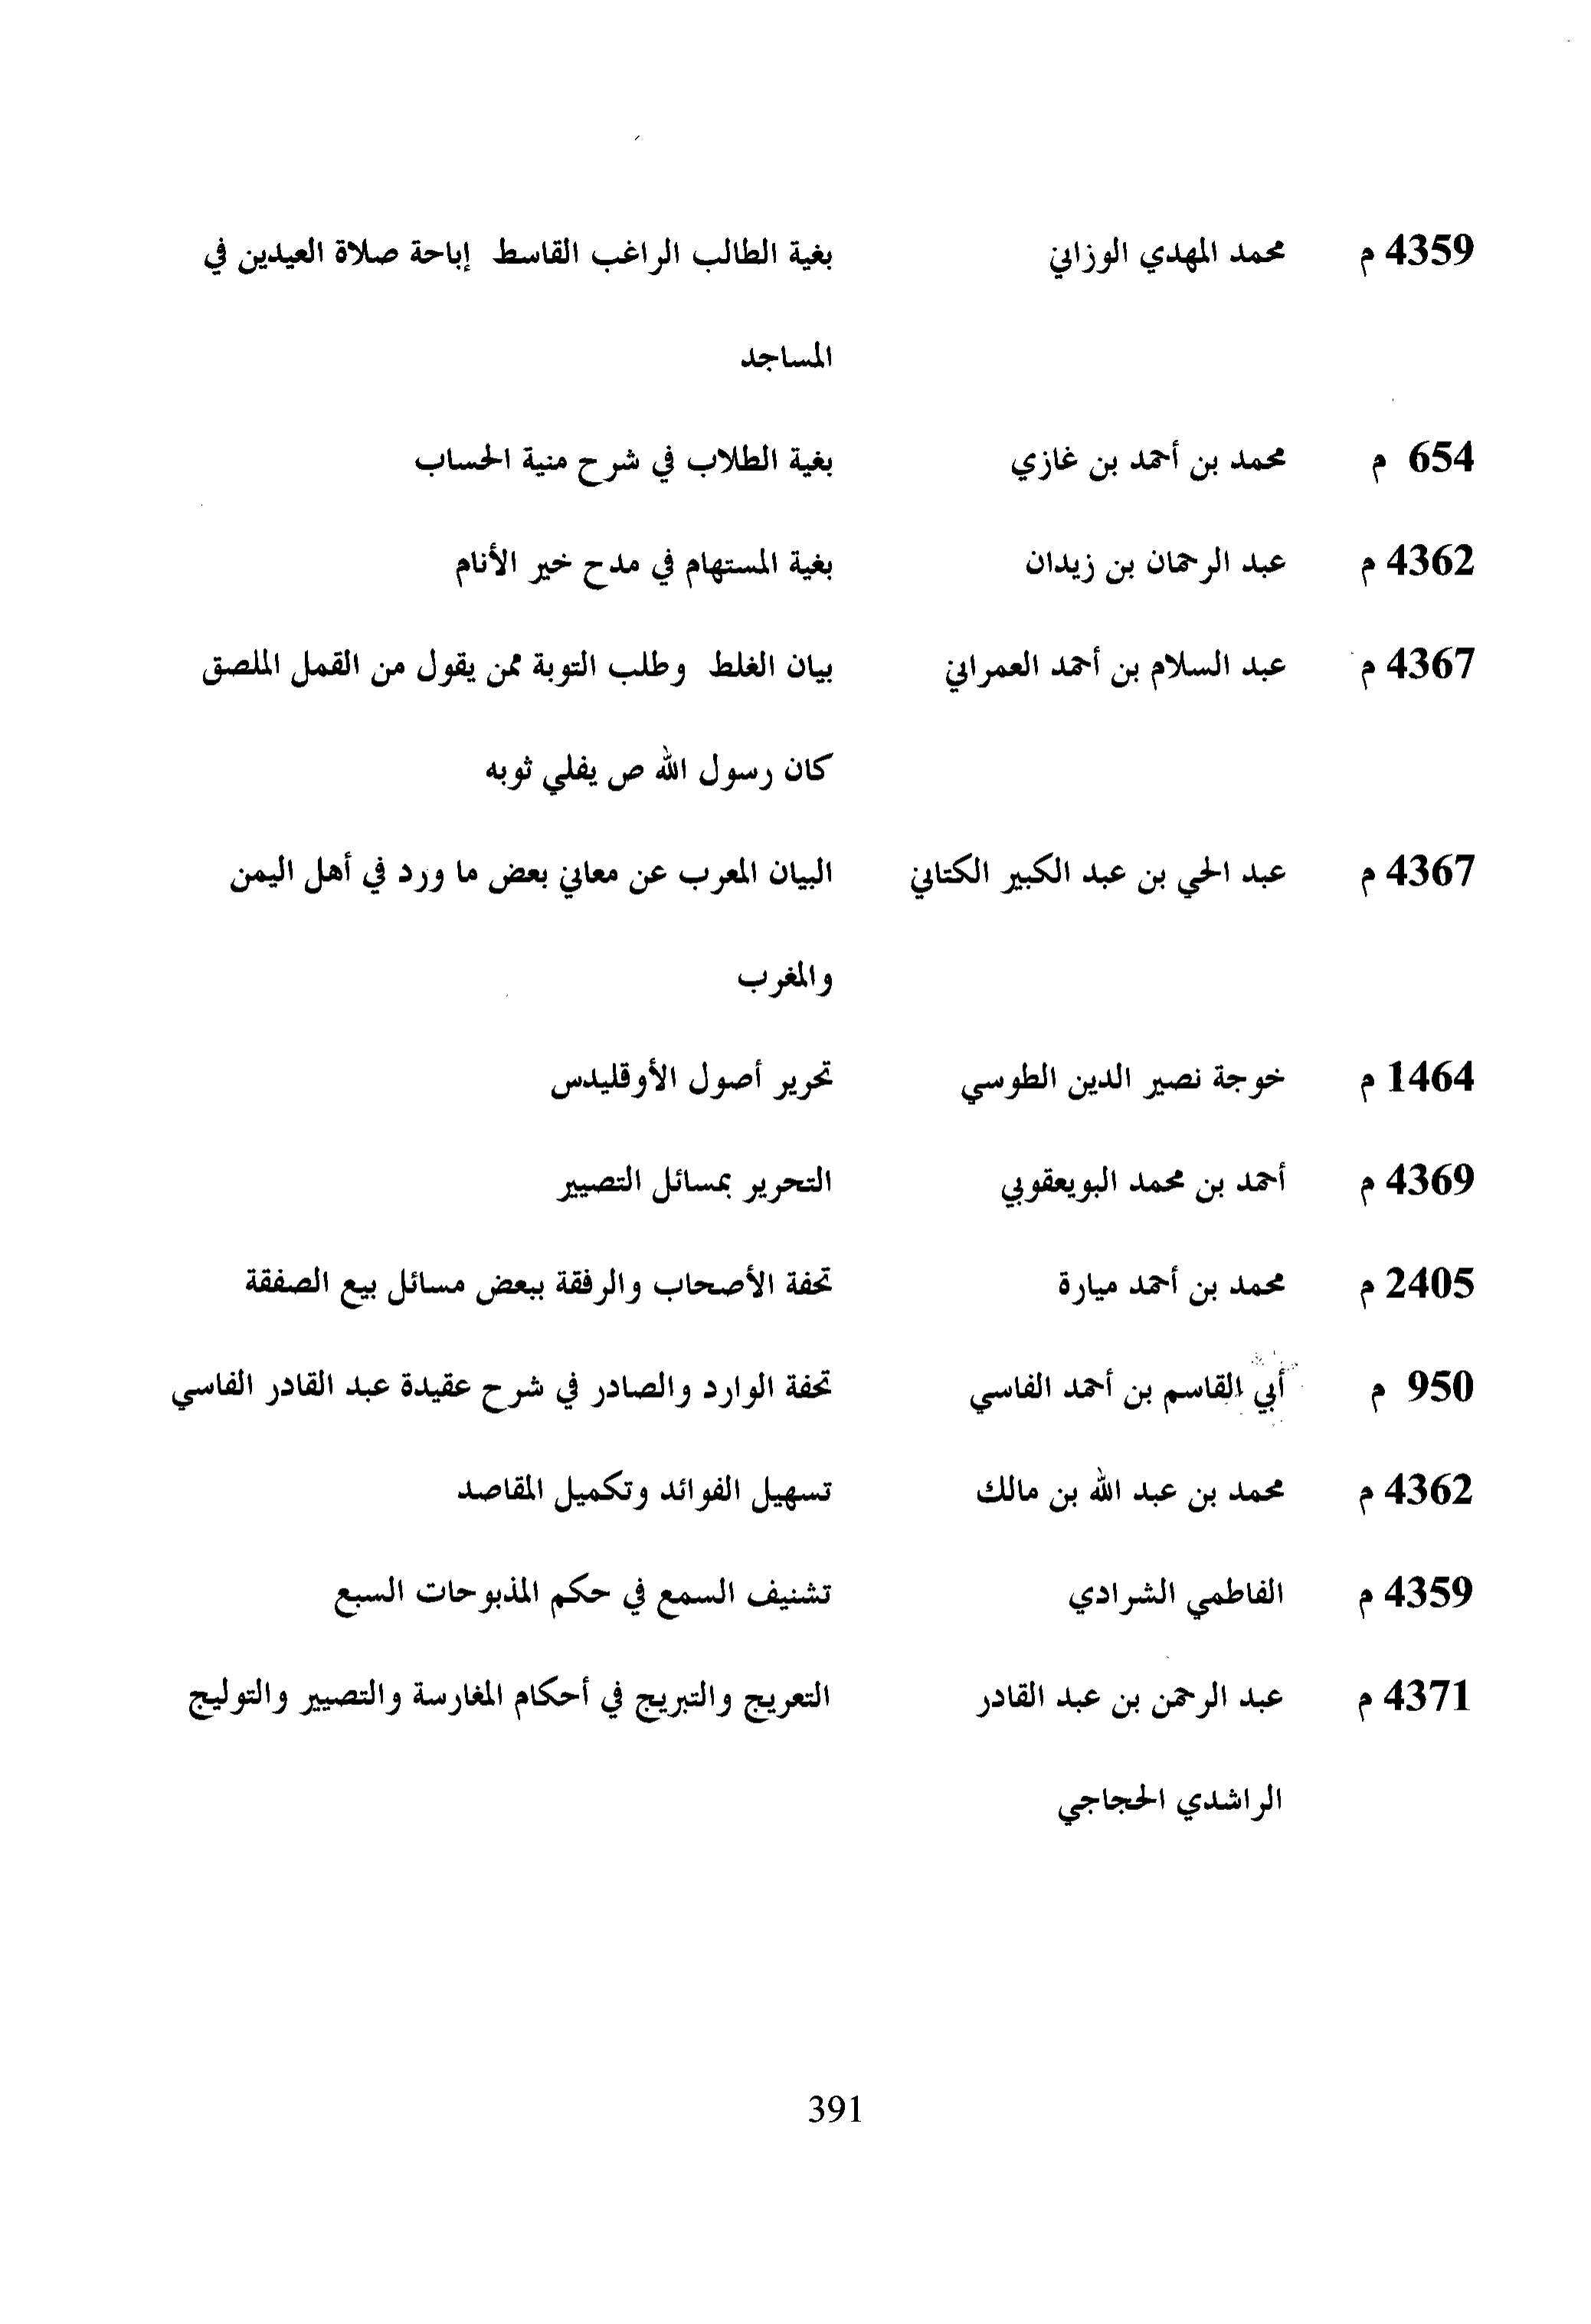 4359 م محمد المهدي الوزاني بغية الطالب الراغب القاسط إباحة صلاة العيدين في
المساجد
654 م محمد بن أحمد بن غازي بغية الطلاب في شرح منية الحساب
4362 م عبد الرحمان بن زيدان بغية المستهام في مدح خير الأنام
4367 م عبد السلام بن أحمد العمراني بيان الغلط وطلب التوبة ممن يقول من القمل الملصق
كان رسول الله ص يفلي ثوبه
4367 م عبد الحي بن عبد الكبير الكتاني البيان المعرب عن معاني بعض ما ورد في أهل اليمن
والمغرب
1464 م خوجة نصير الدين الطوسي تحرير أصول الأوقليدس
4369 م أحمد بن محمد البويعقوبي التحرير بمسائل التصيير
2405 م محمد بن أحمد ميارة تحفة الأصحاب والرفقة ببعض مسائل بيع الصفقة
950 م أبي القاسم بن أحمد الفاسي تحفة الوارد والصادر في شرح عقيدة عبد القادر الفاسي
4362 م محمد بن عبد الله بن مالك تسهيل الفوائد وتكميل المقاصد
4359 م الفاطمي الشرادي تشنيف السمع في حكم المذبوحات السبع
4371 م عبد الرحمن بن عبد القادر التعريج والتبريج في أحكام المغارسة والتصيير والتوليج
الراشدي الحجاجي
391